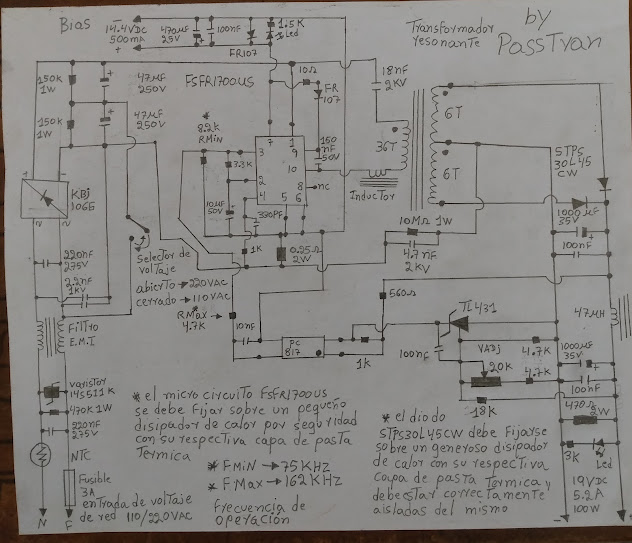 Bias
14.4VDC
500mA
470µF
25V
100nF
1.5K
Led
FR107
Transformador
resonante
by
PassTyan
250K
1W
47µF
250V
150K
1W
47µF
250V
FSFR1700US
10Ω
FR
107
18nF
2KV
36T
6T
6T
Inductor
* 8.2K
RMin
3.3K
10µF
50V
330PF
7
1
3
9
10
2
8
nc
4
5
6
150
nF
50V
1K
0.25Ω
2W
10MΩ 1W
4.7nF
2KV
STPS
30L45
CW
1000µF
35V
100nF
KBj
1065
220nF
275V
2.2nF
1KV
selector
de
voltaje
abierto → 220VAC
cerrado → 110VAC
* RMax
4.7K
10nF
PC
817
1K
560Ω
TL431
100nF
VAdj
20K
4.7K
4.7K
18K
47µH
1000µF
35V
100nF
470Ω
3K
Led
19VDC
5.2A
100W
Filtro
E.M.I
varistor
14S511K
470K 1W
220nF
275V
NTC
Fusible
3A
entrada de voltaje
de red 110/220VAC
N
F
* el micro circuito FSFR1700US
se debe fijar sobre un pequeño
disipador de calor por seguridad
con su respectiva capa de pasta
termica
* FMin → 75KHZ
* FMax → 162KHZ
Frecuencia de
operación
* el diodo
STPS30L45CW debe Fijarse
sobre un generoso disipador
de calor con su respectiva
capa de pasta termica y
debe estar correctamente
aisladas del mismo